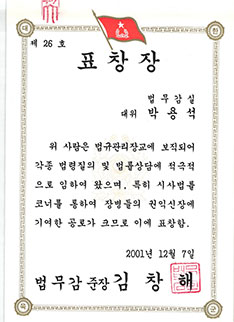 제 26 호
표창장
법무감실
대위 박용석
위 사람은 법규관리장교에 보직되어
각종 법령질의 및 법률상담에 적극적
으로 임하여 왔으며, 특히 시사법률
코너를 통하여 장병들의 권익신장에
기여한 공로가 크므로 이에 표창함.
2001년 12월 7일
법무감 준장 김창해